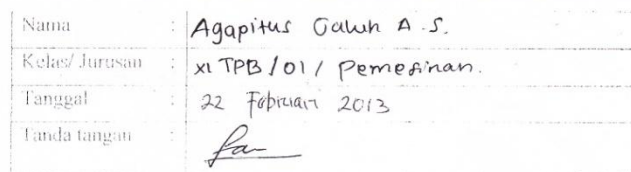 Nama : Agapitus Galuh A.S.
Kelas/ Jurusan : XI TPB / 01 / Pemesinan.
Tanggal : 22 Februari 2013
Tanda tangan :